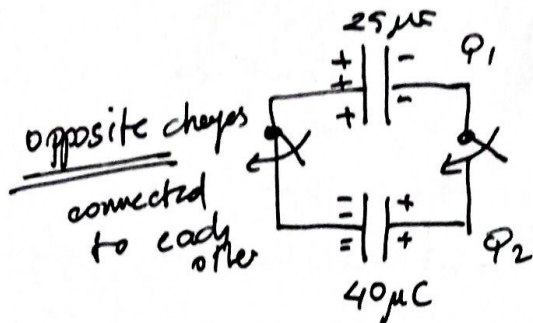 25 μF
+ -
+
+ -
Q1
opposite charges
connected
to each
other
= +
= +
Q2
40 μC